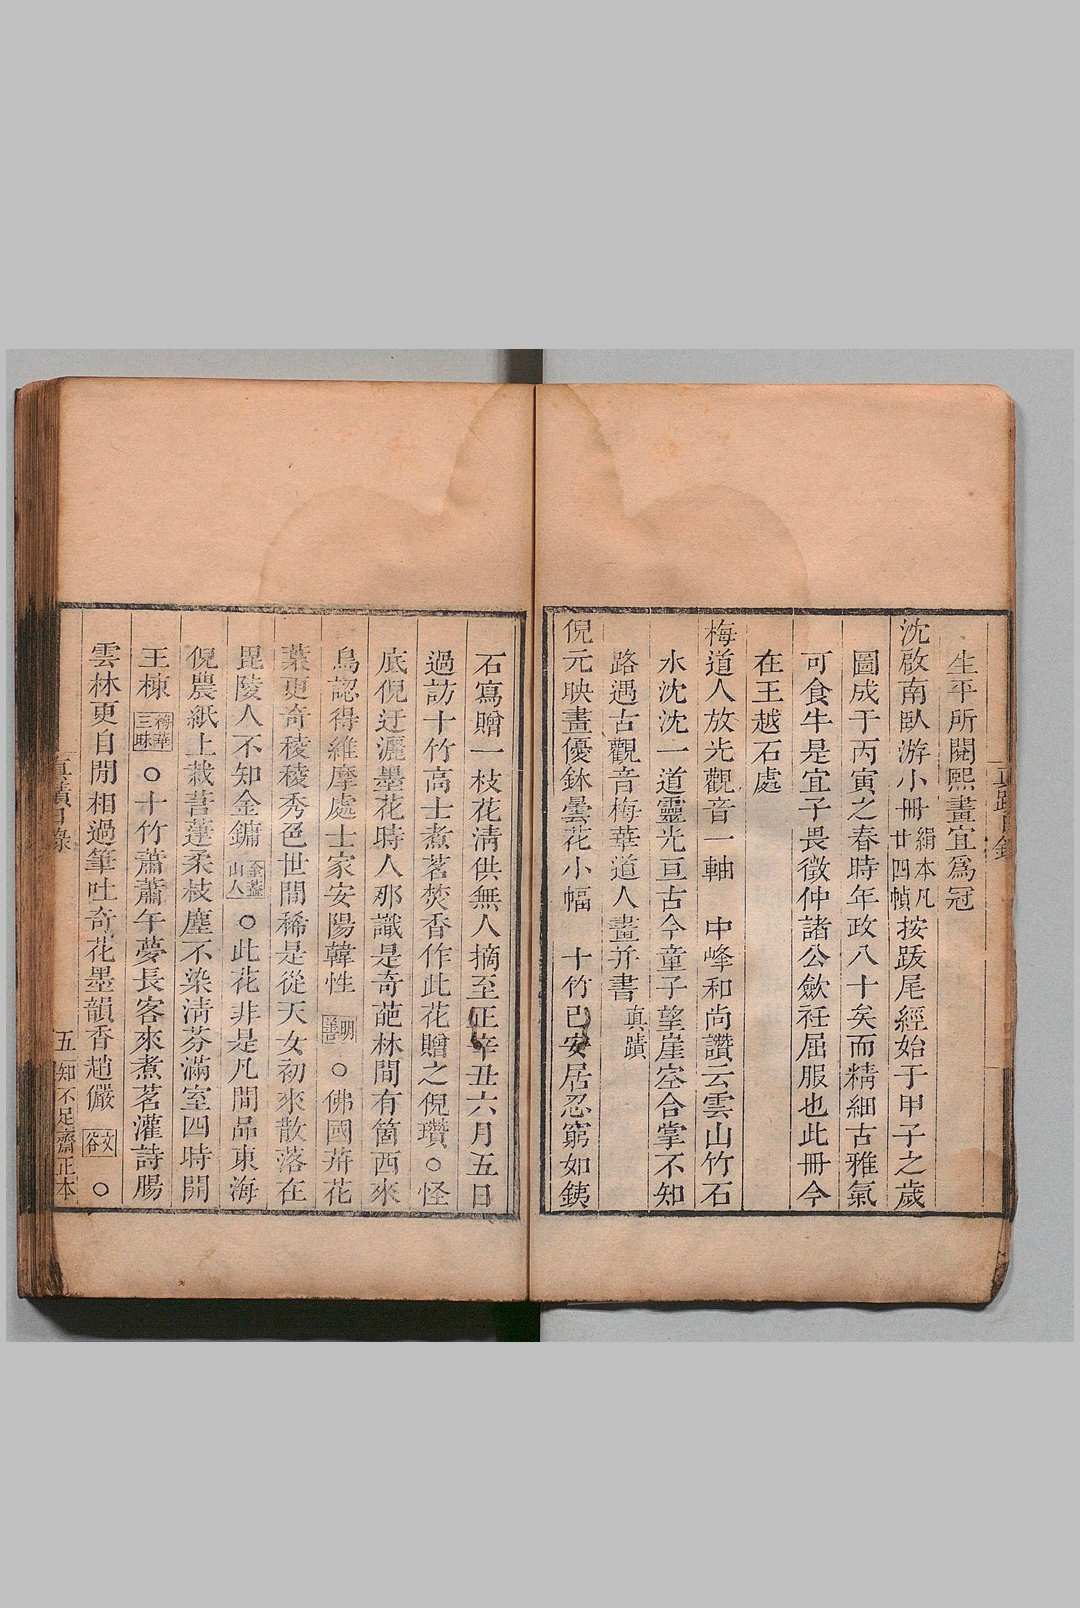 生平所閱熙畫宜爲冠
沈啟南臥游小冊絹本凡廿四幀按跋尾經始于甲子之歲
圖成于丙寅之春時年政八十矣而精細古雅氣
可食牛是宜子畏徵仲諸公歛衽屈服也此冊今
在王越石處
梅道人放光觀音一軸 中峰和尚讚云雲山竹石
水沈沈一道靈光亘古今童子望崖空合掌不知
路遇古觀音梅華道人畫并書真蹟
倪元映畫優鉢曇花小幅 十竹已安居忍窮如銕
石寫贈一枝花淸供無人摘至正辛丑六月五日
過訪十竹高士煮茗焚香作此花贈之倪瓚○怪
底倪迂灑墨花時人那識是奇葩林間有箇西來
鳥認得維摩處士家安陽韓性 明善 ○佛國葬花
葉更奇稜稜秀色世間稀是從天女初來散落在
毘陵人不知金鏞 山人 ○此花非是凡間品東海
倪農紙上栽菩薘柔枝塵不染淸芬滿室四時開
王棟 三昧 ○十竹蕭蕭午夢長客來煮茗灌詩腸
雲林更自閒相過筆吐奇花墨韻香趙儼 文谷 ○
真蹟日錄
五
知不足齋正本